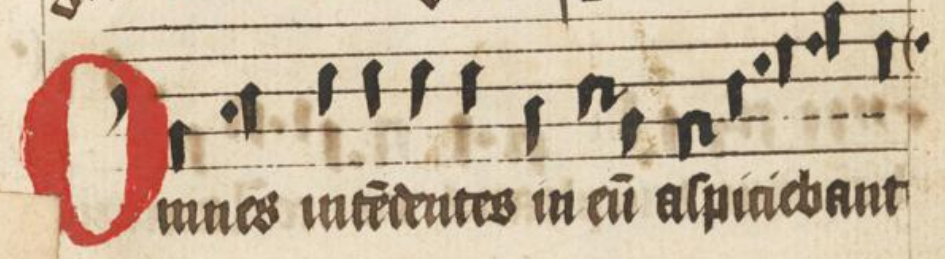 Omnes intēdentes in eū aspiciebant